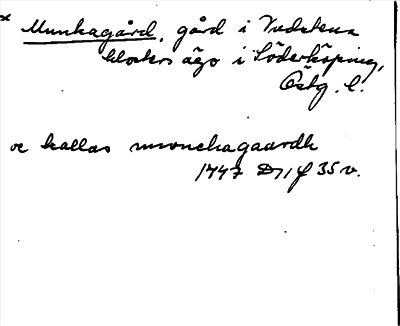 x Munkagård, gård i Vadstena
klosters ägo i Söderköping,
Östg. l.
oc kallas mwnchagaardh
1447 D 11 f 35 v.